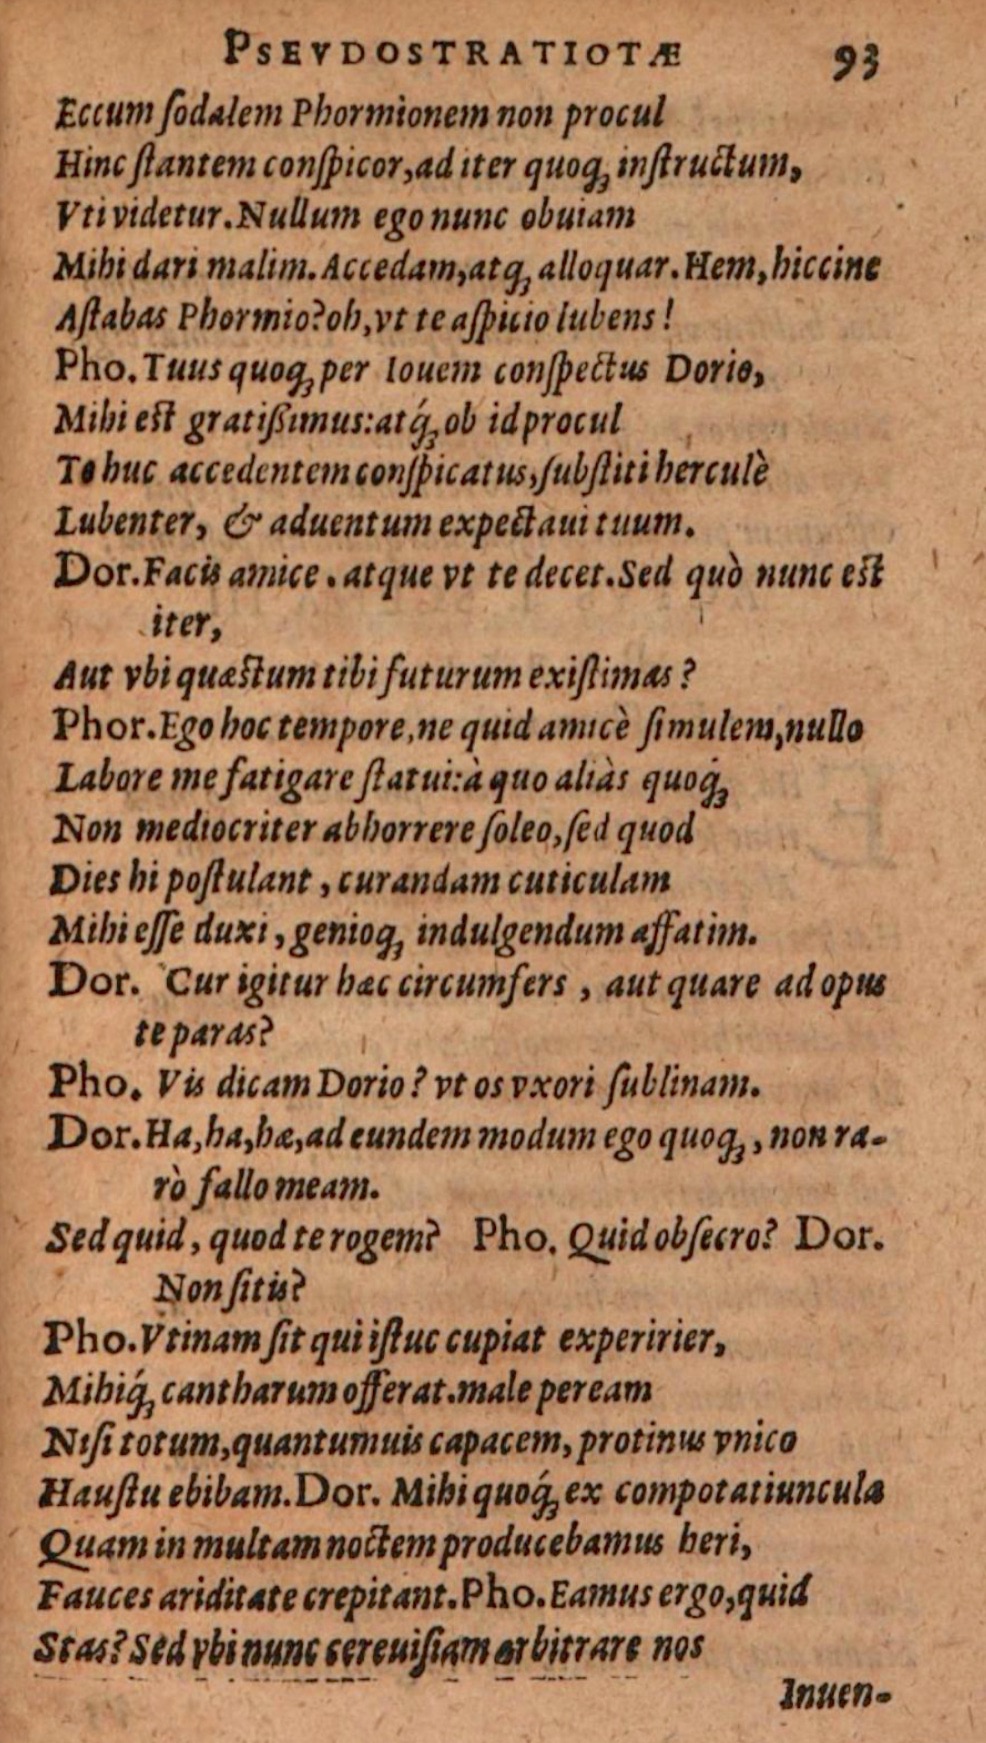 PSEVDOSTRATIOTÆ 93
Eccum ſodalem Phormionem non procul
Hinc ſtantem conſpicor, ad iter quoq; inſtructum,
Vti videtur. Nullum ego nunc obuiam
Mihi dari malim. Accedam, atq; alloquar. Hem, hiccine
Aſtabas Phormio? oh, vt te aſpicio lubens!
Pho. Tuus quoq; per Iouem conſpectus Dorio,
Mihi est gratiſsimus: atq́; ob id procul
Te huc accedentem conſpicatus, ſubſtiti herculè
Lubenter, & aduentum expectaui tuum.
Dor. Facis amice. atque vt te decet. Sed quò nunc est
iter,
Aut vbi quæstum tibi futurum exiſtimas?
Phor. Ego hoc tempore, ne quid amicè ſimulem, nullo
Labore me fatigare ſtatui: à quo aliàs quoq́;
Non mediocriter abhorrere ſoleo, ſed quod
Dies hi poſtulant, curandam cuticulam
Mihi eſſe duxi, genioq; indulgendum affatim.
Dor. Cur igitur hæc circumfers, aut quare ad opus
te paras?
Pho. Vis dicam Dorio? vt os vxori ſublinam.
Dor. Ha, ha, hæ, ad eundem modum ego quoq;, non ra-
rò fallo meam.
Sed quid, quod te rogem? Pho. Quid obſecro? Dor.
Non ſitis?
Pho. Vtinam ſit qui iſtuc cupiat experirier,
Mihiq́; cantharum offerat. male peream
Niſi totum, quantumuis capacem, protinus vnico
Hauſtu ebibam. Dor. Mihi quoq́; ex compotatiuncula
Quam in multam noctem producebamus heri,
Fauces ariditate crepitant. Pho. Eamus ergo, quid
Stas? Sed vbi nunc cereuiſiam arbitrare nos
Inuen-